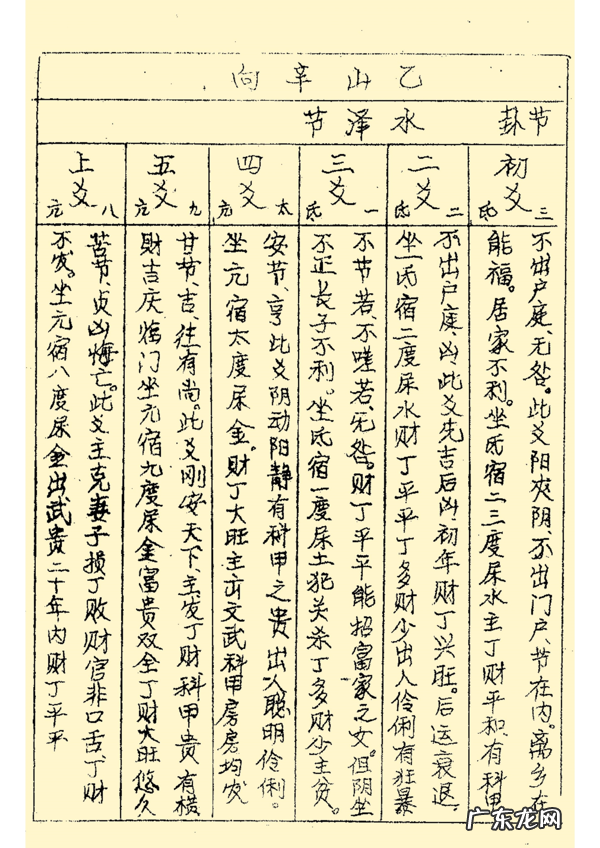 乙山辛向
节卦
水泽节
初爻
三
氐
不出户庭、无咎。此爻阳爻阴、不出门户、节在内。离乡在
能福。居家不利。坐氐宿二三度尿水主丁财平和、有科甲
二爻
二
氐
不出户庭、凶、此爻先吉后凶、初年财丁兴旺。后运衰退、
坐氐宿二度尿水财丁平平丁多财少出入伶俐有狂暴
三爻
一
氐
不节若、不嗟若、无咎。财丁平平能招富家之女。但阴坐
不正长子不利。坐氐宿一度尿土犯关杀丁多财少主贫。
四爻
太
亢
安节、亨此爻阴动阳静有科甲之贵出人聪明伶俐。
坐亢宿太度尿金。财丁大旺主出文武科甲房房均发
五爻
九
亢
甘节、吉、往有尚。此爻刚安天下、主发丁财科甲贵有横
财吉庆临门坐亢宿九度尿金富贵双全丁财大旺悠久
上爻
八
亢
苦节、贞凶悔亡。此爻主克妻子损丁败财官非口舌丁财
不发。坐亢宿八度尿金出武贵二十年内财丁平平
广东龙网